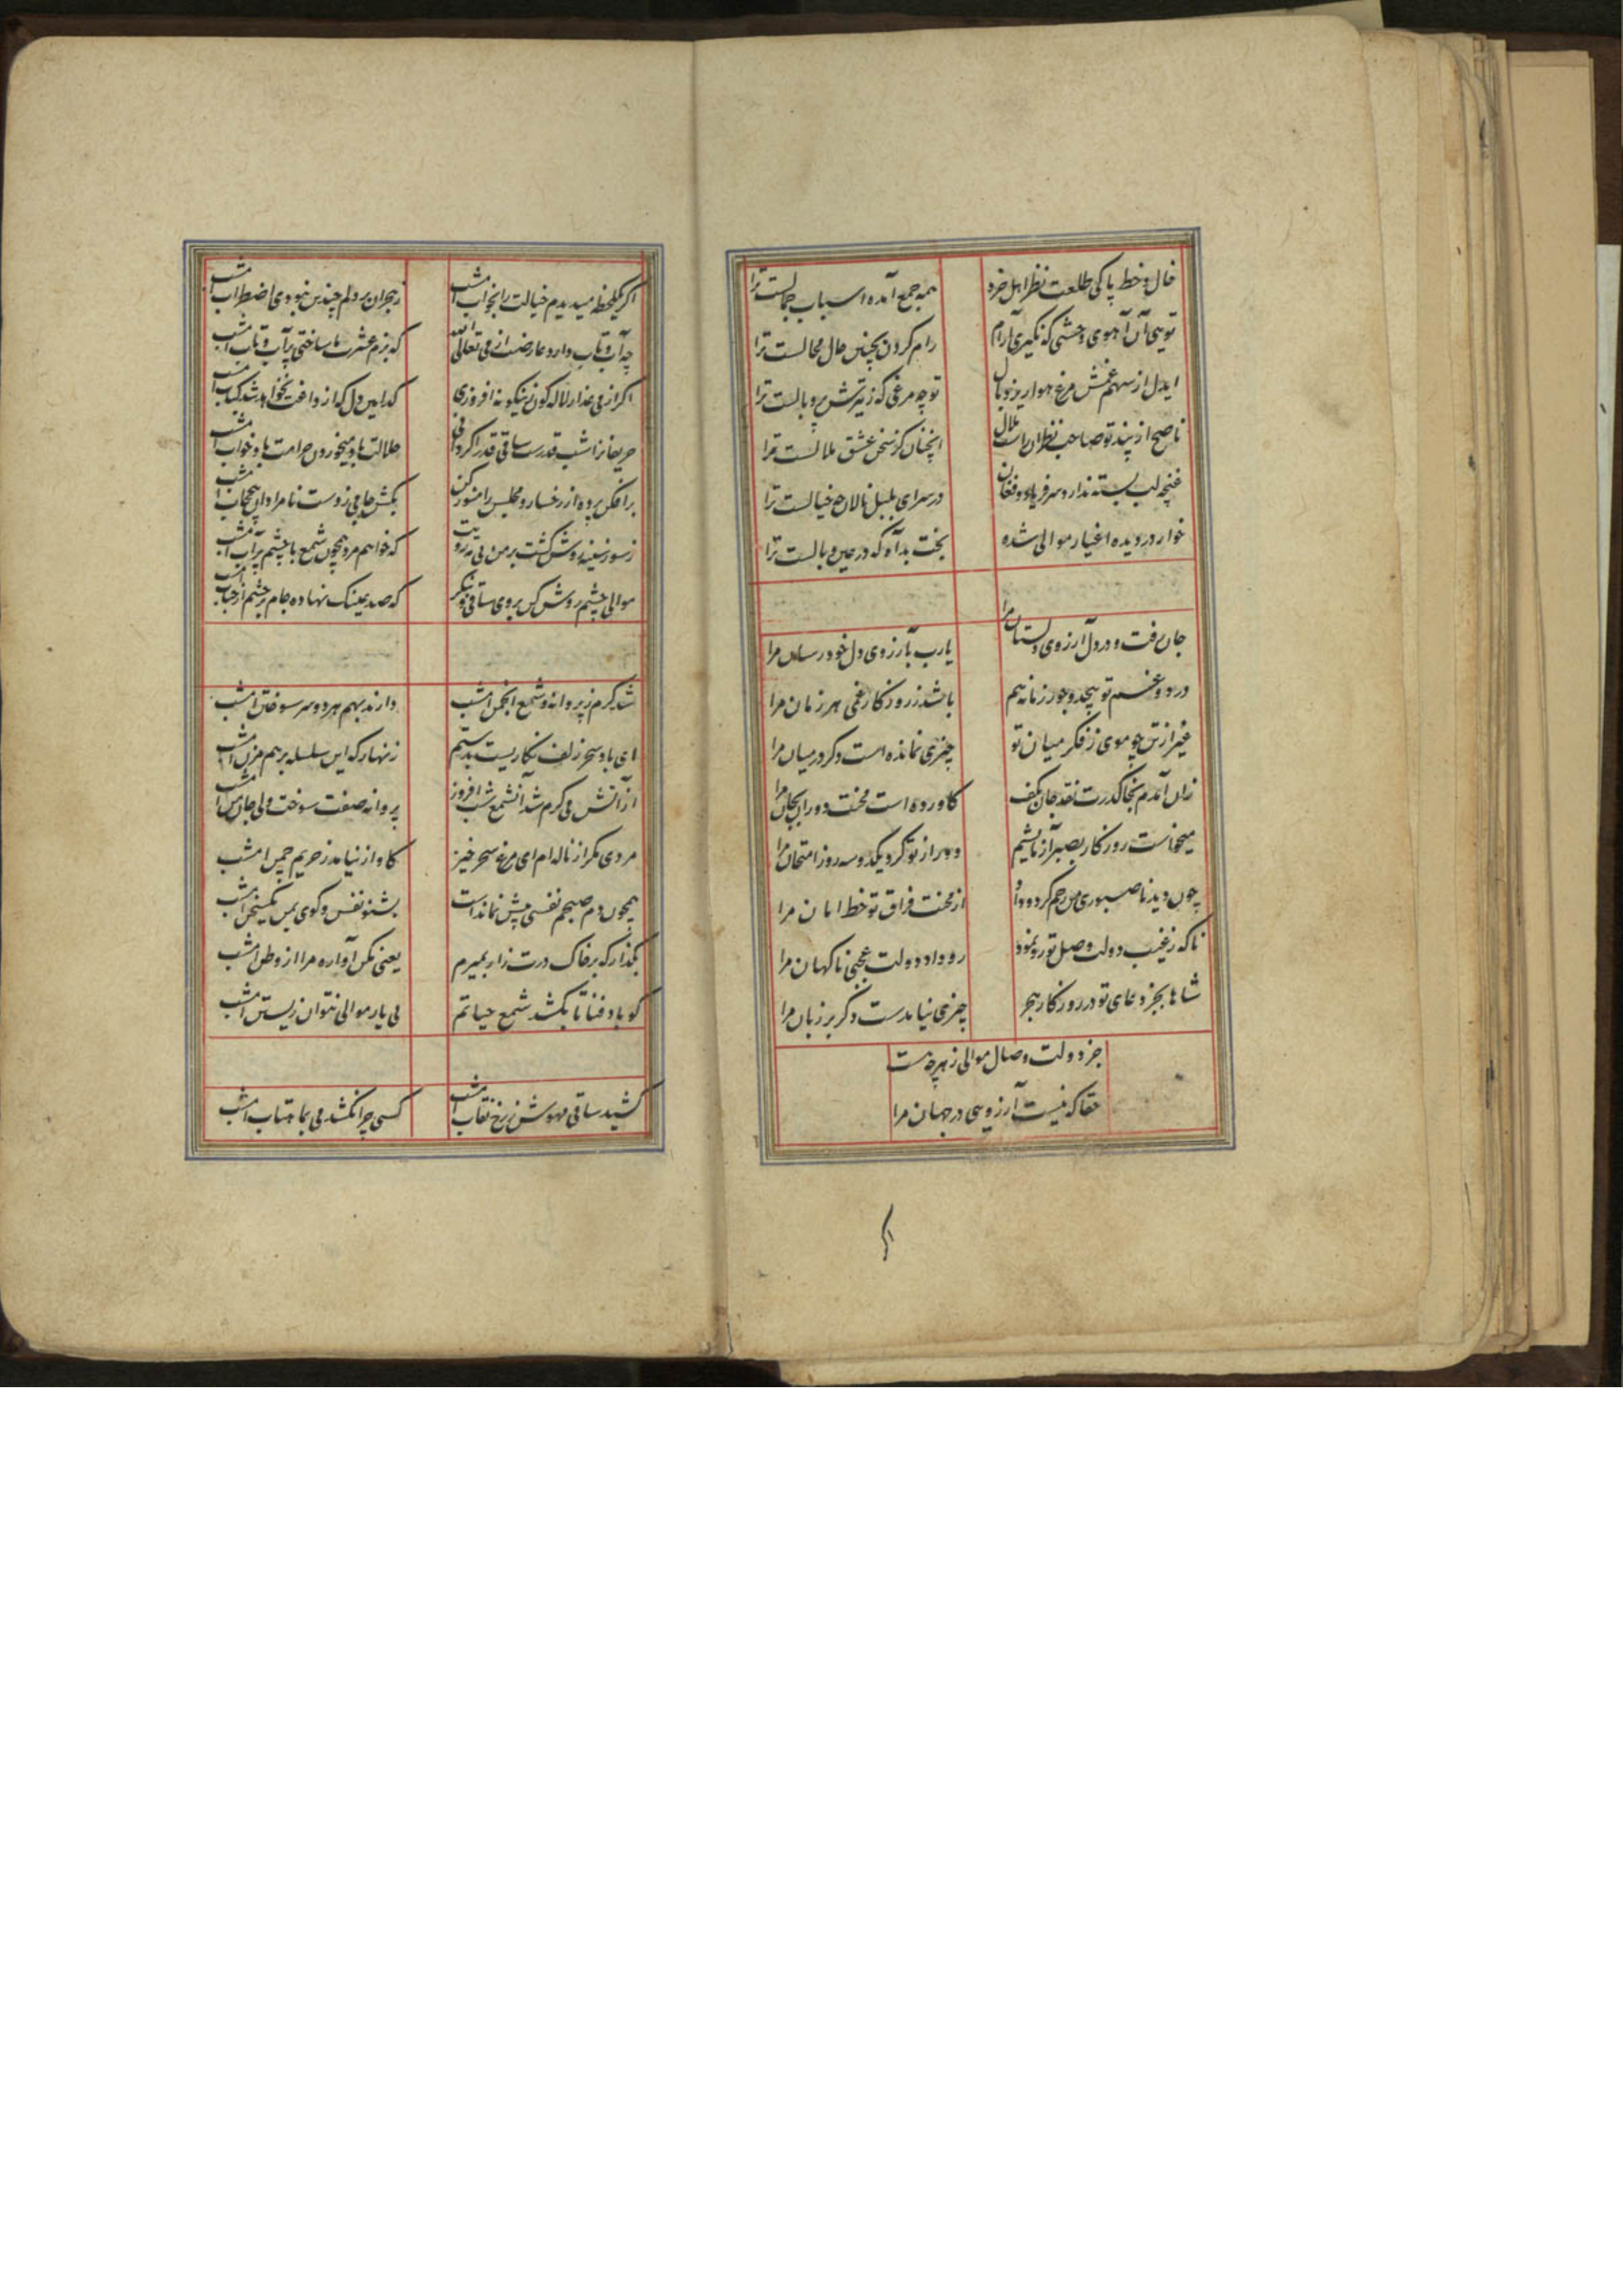 خال و خط پاکی طلعت نظر اهل خرد
همه جمع آمده اسباب جمالست ترا
تویی آن آهوی وحشی که نگیری آرام
رام کردن بچنین حال محالست ترا
ایدل از سهم غمش مرغ هوا ریزد بال
تو چه مرغی که ز تیرش پر و بالست ترا
ناصح از پند تو صاحب نظران راست ملال
آنچنان کز سخن عشق ملالست ترا
غنچه لب بسته ندارد سر فریاد و فغان
در سر ای بلبل نالان چه خیالست ترا
خوار در دیده اغیار موالی شده
بخت بد آه که در عین وبالست ترا
جان رفت و در دل آرزوی دلستان مرا
یارب بآرزوی دل خود رسان مرا
درد و غم تو بیحد و جور زمانه هم
باشد ز روزگار غمی هر زمان مرا
غیر از تن چو موی ز فکر میان تو
چیزی نمانده است دگر در میان مرا
زان آمدم بخاک درت نقد جان بکف
کاورده است محنت دوران بجان مرا
میخواست روزگار بصبر آزمائیم
دور از تو کرد یکدو سه روز امتحان مرا
چون دید ناصبوری من رحم کرد و داد
از محنت فراق تو خط امان مرا
ناگه ز غیب دولت وصل تو رو نمود
رو داد دولت عجبی ناگهان مرا
شاها بجز دعای تو در روزگار هجر
چیزی نیامدست دگر بر زبان مرا
جز دولت وصال موالی ز هرچه هست
حقا که نیست آرزویی در جهان مرا
اگر یکلحظه میدیدم خیالت را بخواب امشب
ز هجران بر دلم چندین نبودی اضطراب امشب
چه آب و تاب دارد عارضت از می تعالی الله
که بزم عشرت ما ساختی پر آب و تاب امشب
اگر از می عذار لاله گون زینگونه افروزی
کدامین دل که از داغت نخواهد شد کباب امشب
حریفانرا شب قدرست ساقی قدر اگر دانی
حلالت باد میخوردن حرامت باد خواب امشب
برافکن پرده از رخسار و مجلس را منور کن
بکش جامی ز دست نامرادان بیحجاب امشب
ز سوز سینه روشن گشت بر من بی مه رویت
که خواهم مرد همچون شمع با چشم پر آب امشب
موالی چشم روشن کن بروی ساقی و بنگر
که صد عینک نهاده جام بر چشم از حباب امشب
شد گرم ز پروانه و شمع انجمن امشب
دارند بهم هر دو سر سوختن امشب
ای باد سحر زلف نگاریست بدستم
زنهار که این سلسله بر هم مزن امشب
از آتش می گرم شد آنشمع شب افروز
پروانه صفت سوخت ولی جان من امشب
مردی مگر از ناله ام ای مرغ سحر خیز
کاواز نیامد ز حریم چمن امشب
همچون دم صبحم نفسی بیش نماندست
بشنو نفس و گوی بمن یکسخن امشب
بگذار که بر خاک درت زار بمیرم
یعنی مکن آواره مرا از وطن امشب
گو باد فنا تا بکشد شمع حیاتم
بی یار موالی نتوان زیستن امشب
کشید ساقی مهوش ز رخ نقاب امشب
کسی چرا نکشد می بماهتاب امشب